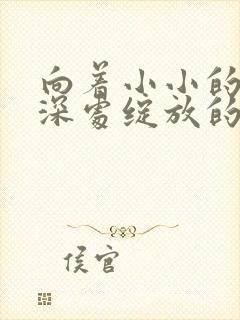 向着小小的
深处绽放的
侯官